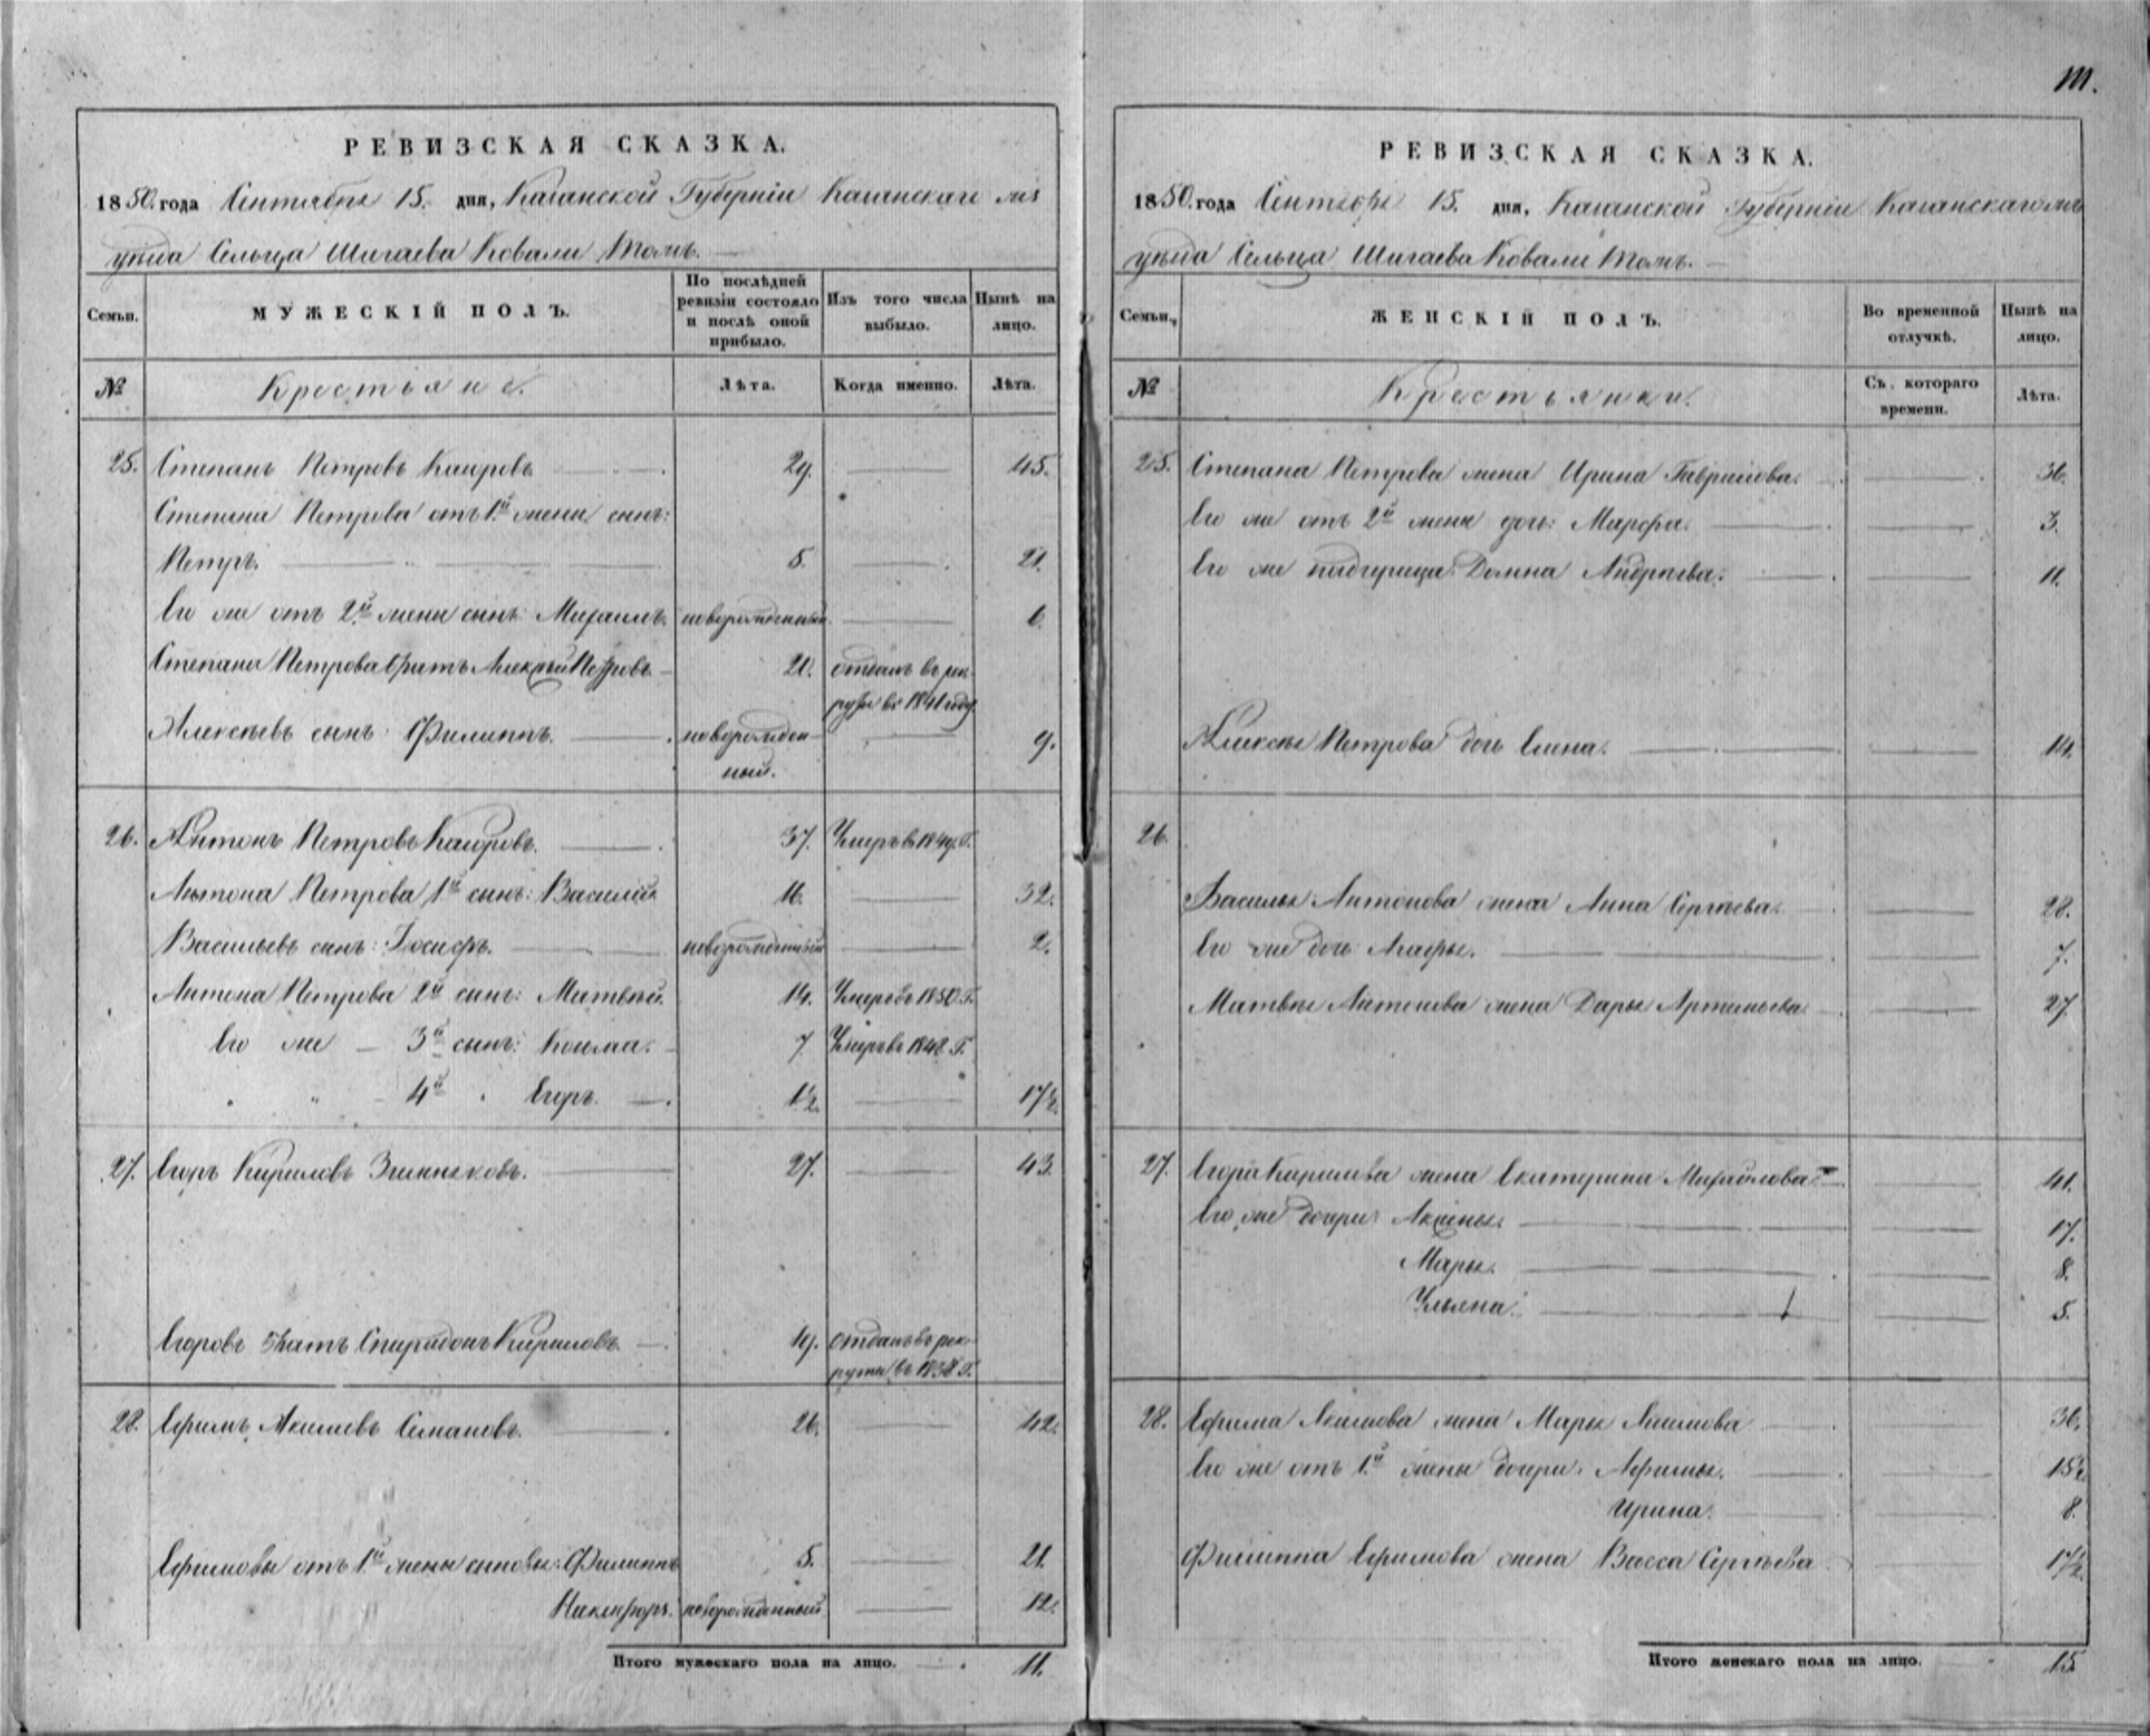 111.
РЕВИЗСКАЯ СКАЗКА.
1850. года Сентября 15. дня, Казанской Губерніи Казанскаго
уѣзда Сельца Шигаева Ковали тожъ.
Семьи.
МУЖЕСКІЙ ПОЛЪ.
По послѣдней ревизіи состояло и послѣ оной прибыло.
Изъ того числа выбыло.
Нынѣ на лицо.
№
Крестьяне.
Лѣта.
Когда именно.
Лѣта.
25. Степанъ Петровъ Каировъ 29. 45.
Степана Петрова отъ 1й жены сынъ:
Петръ. 5. 21.
Его же отъ 2й жены сынъ Михаилъ. новорожденный. 6.
Степана Петрова братъ Алексѣй Петровъ 20. отданъ въ рек-
руты въ 1841 году
Алексѣевъ сынъ Филиппъ. новорожден- 9.
ный.
26. Антонъ Петровъ Каировъ. 37. Умеръ въ 1849. Г.
Антона Петрова 1й сынъ: Василій 16. 32.
Васильевъ сынъ: Іосифъ. новорожденный 2.
Антона Петрова 2й сынъ: Матвѣй. 14. Умеръ въ 1850. Г.
Его же 3й сынъ: Козма. 7 Умеръ въ 1848. Г.
" " 4й " Егоръ. 1½. 17½.
27. Егоръ Кириловъ 27. 43.
Егоровъ братъ Спиридонъ Кириловъ. 19. отданъ въ рек-
руты въ 1838 Г.
28. Ефимъ Акимовъ 26. 42.
Ефимовы отъ 1й жены сыновья: Филиппъ 5. 21.
Никифоръ. новорожденный 12.
Итого мужескаго пола на лицо. 11.
РЕВИЗСКАЯ СКАЗКА.
1850. года Сентября 15. дня, Казанской Губерніи Казанскаго
уѣзда Сельца Шигаева Ковали тожъ.
Семьи.
ЖЕНСКІЙ ПОЛЪ.
Во временной отлучкѣ.
Нынѣ на лицо.
№
Крестьянки.
Съ котораго времени.
Лѣта.
25. Степана Петрова жена Ирина Гаврилова. 36.
Его же отъ 2й жены дочь: Марфа. 3.
Его же падчерица Домна Андреева. 11.
Алексѣя Петрова дочь Елена. 14.
26.
Василья Антонова жена Анна Сергѣева. 28.
Его же дочь 7.
Матвѣя Антонова жена Дарья Артемьева. 27
27. Егора Кирилова жена Екатерина Михайлова 41.
Его же дочери Аксинья. 17.
Марья. 8.
Ульяна. 5.
28. Ефима Акимова жена Марья 36.
Его же отъ 1й жены дочери: Афимья. 15½
Ирина. 8.
Филиппа Ефимова жена Васса Сергѣева. 17½
Итого женскаго пола на лицо. 15